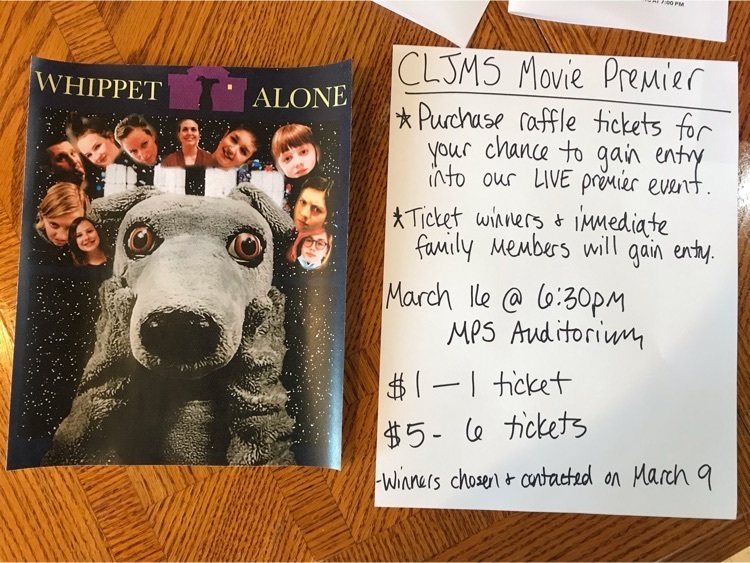 WHIPPET ALONE
CLJMS Movie Premier
* Purchase raffle tickets for
your chance to gain entry
into our LIVE premier event.
* Ticket winners & immediate
family members will gain entry.
March 16 @ 6:30pm
MPS Auditorium
$1 — 1 ticket
$5 - 6 tickets
- Winners chosen & contacted on March 9
7:00 PM